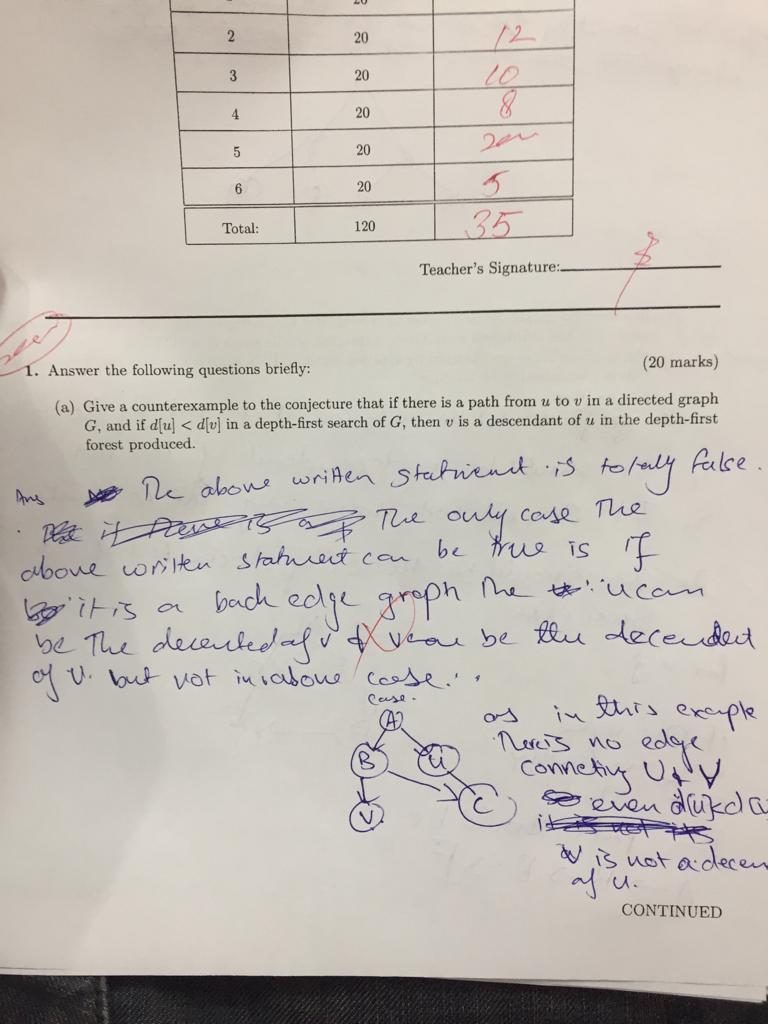 20
2 20 12
3 20 10
4 20 8
5 20
6 20 5
Total: 120 35
Teacher's Signature:
1. Answer the following questions briefly: (20 marks)
(a) Give a counterexample to the conjecture that if there is a path from u to v in a directed graph
G, and if d[u] < d[v] in a depth-first search of G, then v is a descendant of u in the depth-first
forest produced.
Ans The above written statment is totally false.
The only case The
above written statment can be true is if
it is a back edge graph The u can
be The decented of v & v can be the decendent
of U. but not in above case.
case.
A
B
U
V
C
as in this example
There is no edge
connecting U & V
even d[u]<d
v is not a decen
of u.
CONTINUED